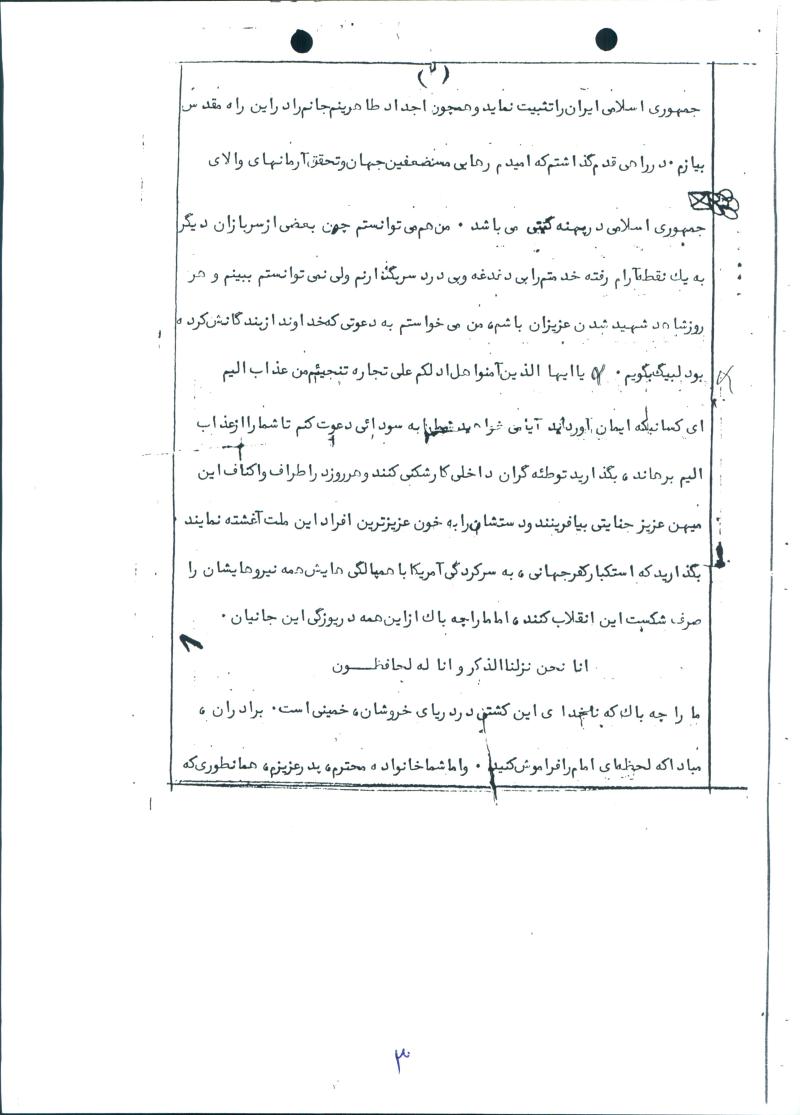 (۲)
جمهوری اسلامی ایران را تثبیت نماید و همچون اجداد طاهرینم جانم را در این راه مقدس
ببازم ۰ در راهی قدم گذاشتم که امیدم رهایی مستضعفین جهان و تحقق آرمانهای والای
جمهوری اسلامی در پهنه گیتی می باشد ۰ من هم می توانستم چون بعضی از سربازان دیگر
به یك نقطه آرام رفته خدمتم را بی دغدغه و بی درد سر بگذارنم ولی نمی توانستم ببینم و هر
روز شاهد شهید شدن عزیزان باشم، من می خواستم به دعوتی که خداوند از بندگانش کرده
بود لبیک بگویم ۰ یا ایها الذین آمنوا هل ادلکم علی تجاره تنجیکم من عذاب الیم
ای کسانیکه ایمان آورداید آیا می خواهید شما را به سودائی دعوت کنم تا شما را از عذاب
الیم برهاند، بگذارید توطئه گران داخلی کار شکنی کنند و هر روز در اطراف و اکناف این
میهن عزیز جنایتی بیافرینند و دستشان را به خون عزیزترین افراد این ملت آغشته نمایند ۰
بگذارید که استکبار کفر جهانی، به سرکردگی آمریکا با همپالگی هایش همه نیروهایشان را
صرف شکست این انقلاب کنند، اما ما را چه باك از این همه دریوزگی این جانیان ۰
انا نحن نزلنا الذکر و انا له لحافظـــون
ما را چه باك که ناخدا ی این کشتی در دریای خروشان، خمینی است ۰ برادران،
مبادا که لحظه ای امام را فراموش کنید ۰ واما شما خانواده محترم، پدر عزیزم، همانطوری که
۳